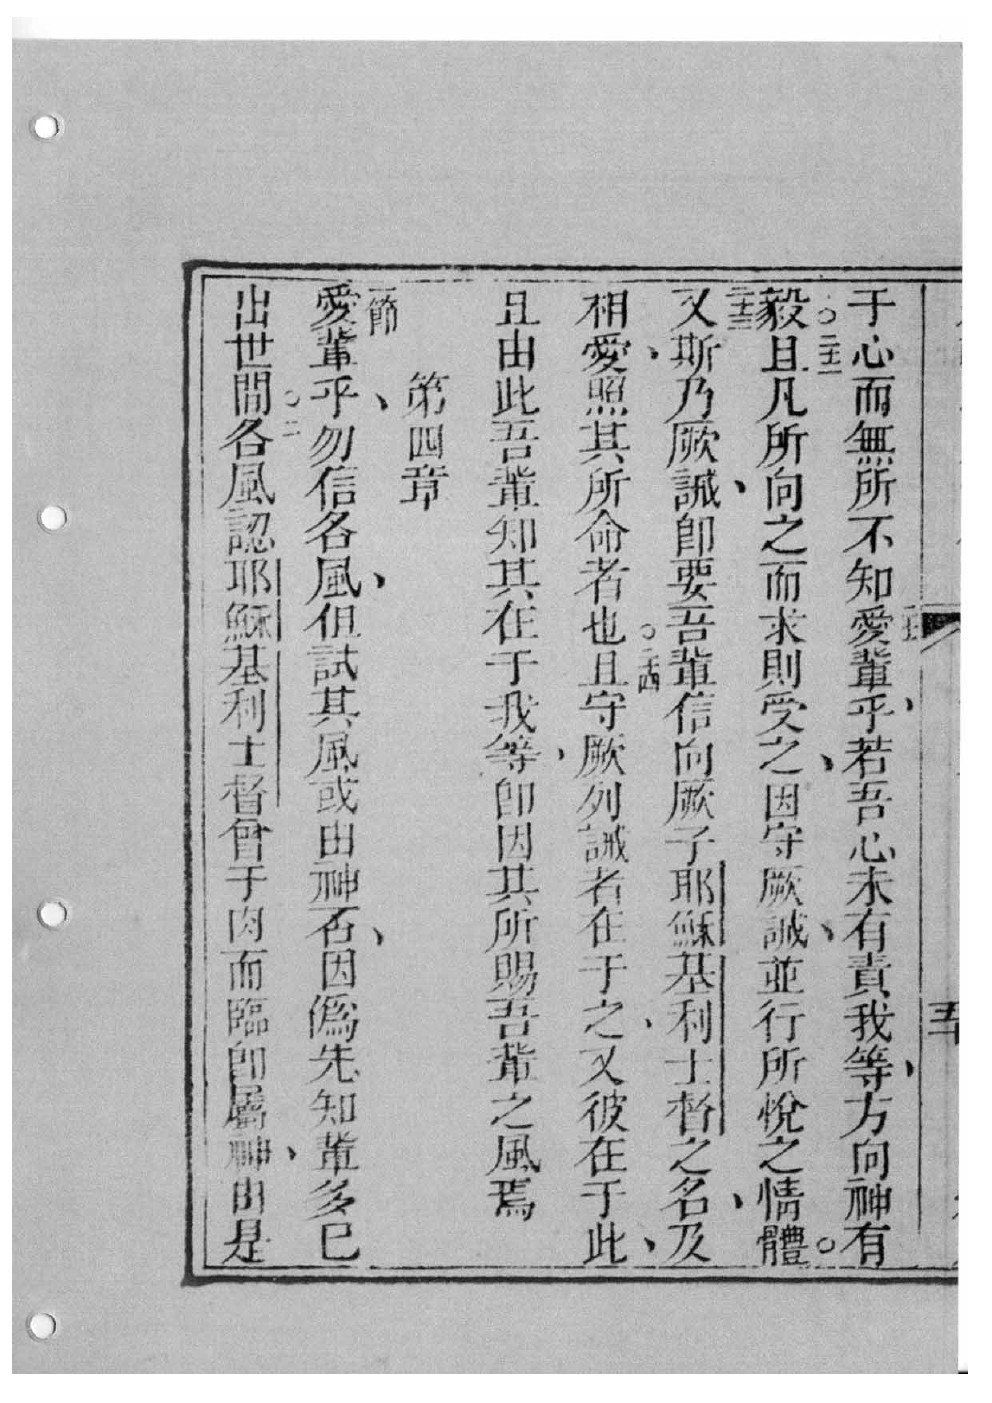 于心而無所不知愛輩乎、若吾心未有責我等、方向神有
毅。且凡所向之而求則受之、因守厥誡、並行所悅之情體。
又斯乃厥誡、卽要吾輩信向厥子耶穌基利士督之名、及
相愛、照其所命者也。且守厥列誡者在于之、又彼在于此、
且由此吾輩知其在于我等、卽因其所賜吾輩之風焉
第四章
愛輩乎、勿信各風、但試其風或由神否、因僞先知輩多已
出世間。各風認耶穌基利士督曾于肉而臨卽屬神、由是
一節
二
二十一
二十二
二十三
二十四
五十